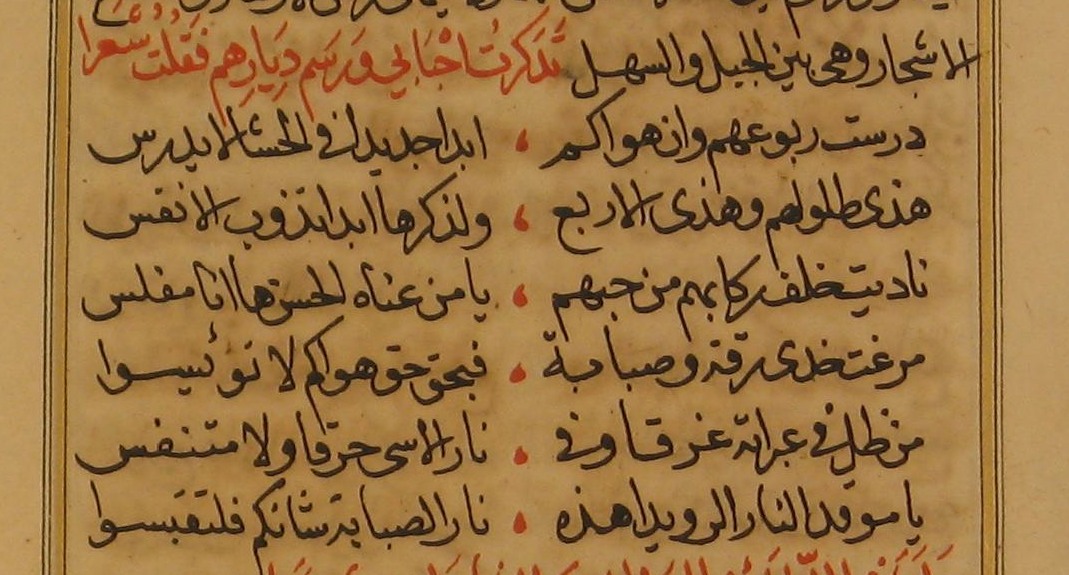 الاشجار وهي بين الجبل والسهل تذكرت احبابي ورسم ديارهم فقلت شعرا
درست ربوعهم وان هواكم ، ابدا جديدا في الحشا لا يدرس
هذى طلولهم وهذى الاربع ، ولذكرها ابدا تذوب الانفس
ناديت خلف ركابهم من حبهم ، يا من عناه الحسن ها انا مفلس
مرغت خدى رقة وصبابة ، فبحق حق هواكم لا توئيسوا
من ظل في عبراته غرقا وفي ، نار الاسى حرقا ولا متنفس
يا موقد النار الرويدا هذه ، نار الصبابة شانكم فلتقبسوا